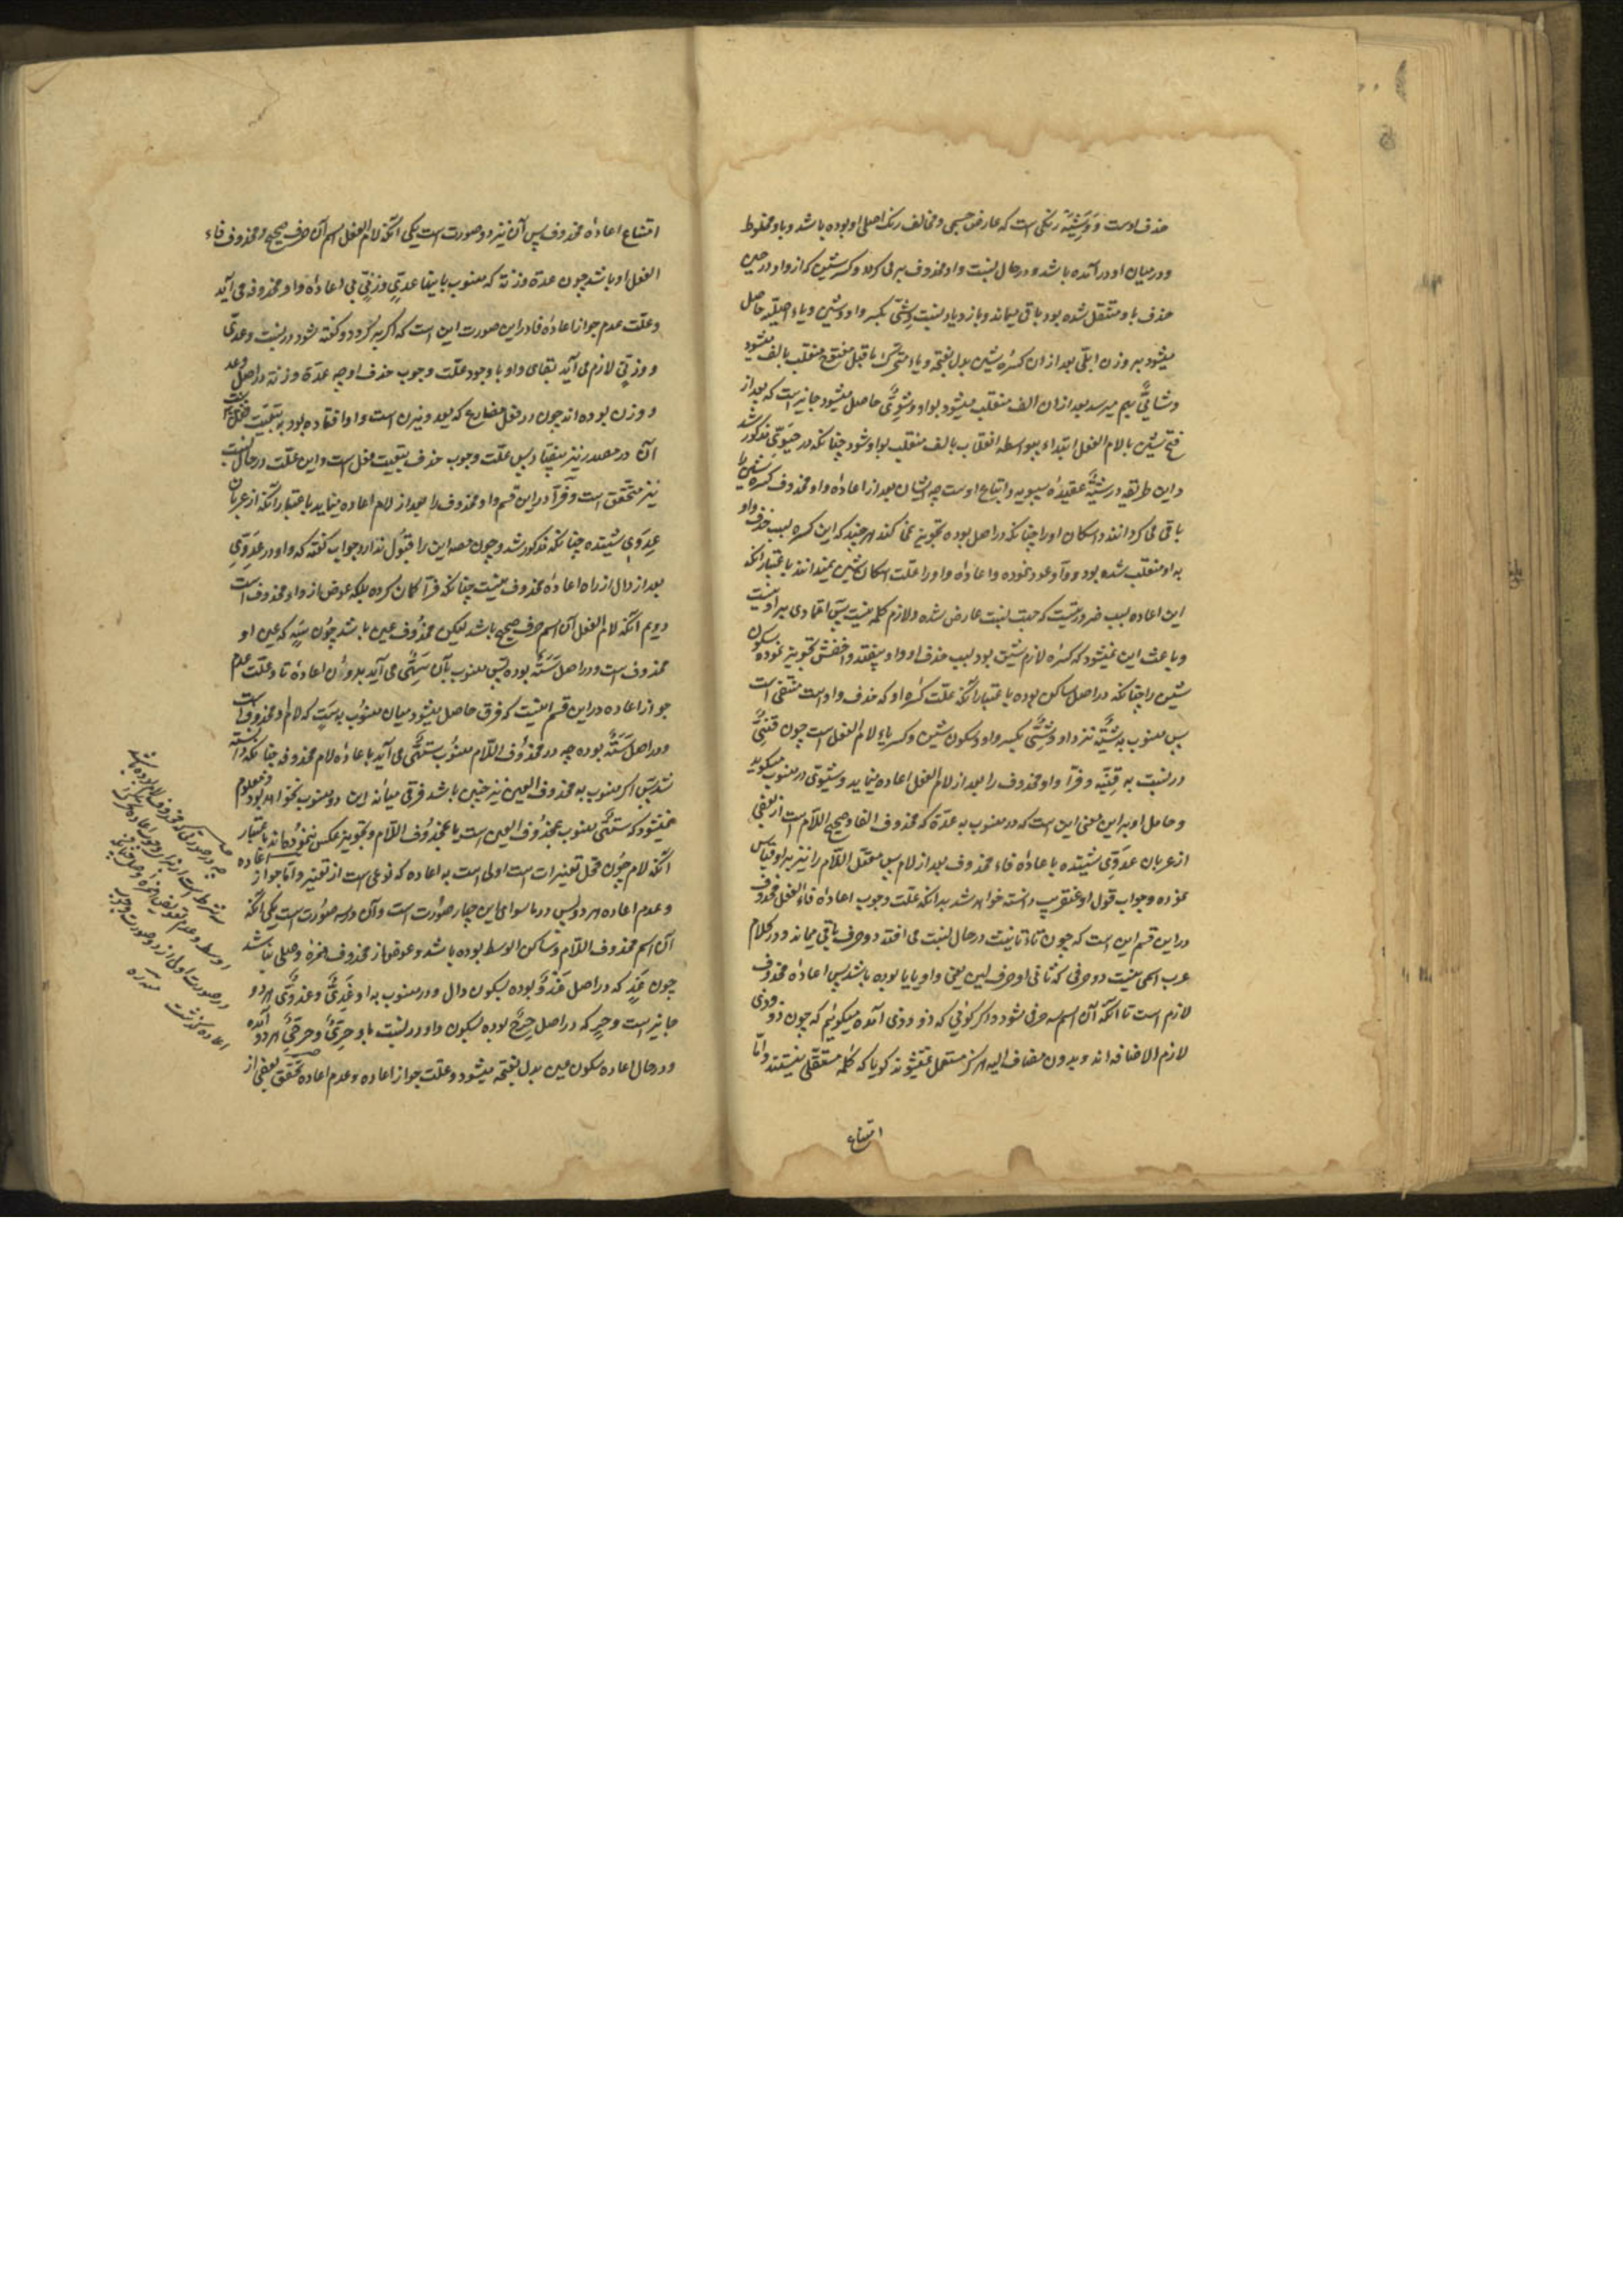 حذف اوست و وَشِیَّه رنکی است که عارض جسمی و مخالف رنک اصلی او بوده باشد و باو مخلوط
و در میان او در آمده باشد و در حال نسبت واو محذوف بر می کردد و کسر شین که از واو در حین
حذف باو منتقل شده بود باقی میماند و باز دیاد نسبت وِشِیّی بکسر واو و شین و یاء اصلیّه حاصل
میشود بر وزن ابلی بعد ازان کسرهٔ شین بدل بفتحه و یاء متحرک ما قبل مفتوح منقلب بالف میشود
و شائیٌّ بهم میرسد بعد ازان الف منقلب میشود بواو و وِشَوِیٌّ حاصل میشود جایز است که بعد از
فتح شین یا لام الفعل ابتداء بیواسطه انقلاب بالف منقلب بواو شود چنانکه در حَیَوِیّ مذکور شد
و این طریقه در شیَّة عقیدهٔ سیبویه و اتباع اوست چه ایشان بعد از اعادهٔ واو محذوف کسره شین را
باقی می کردانند و اسکان او را چنانکه در اصل بوده تجویز نمی کنند هر چند که این کسره بسبب حذف واو
باو منتقل شده بود و واو عود نموده و اعادهٔ واو را علّت اسکان شین نمیدانند باعتبار آنکه
این اعاده بسبب ضرورتیست که جهت نسبت عارض شده و لازم کلمه نیست پس اعتمادی بر او نیست
و باعث این نمیشود که کسرهٔ لازم شین بود بسبب حذف او واو بیفتد و اخفش تجویز نموده سکون
شین را چنانکه در اصل ساکن بوده باعتبار آنکه علّت کسرهٔ او که حذف واو است منتفی است
پس منسوب به شیَّة نزد او وِشْیِیٌّ بکسر واو و سکون شین و کسر یاء لام الفعل است چون قِنْیِیٌّ
در نسبت به قِنْیَه و فرّا واو محذوف را بعد از لام الفعل اعاده مینماید و شِیَوِیّ در منسوب میکوید
و حامل او بر این معنی این است که در منسوب به عدّة که محذوف الفا و صحیح اللّام است از بعضی
از عربان عِدَوِیّ شنیده با عادهٔ فاء محذوف بعد از لام پس معتلّ اللّام را نیز بر او قیاس
نموده و جواب قول او عنقریب دانسته خواهد شد بدانکه علّت وجوب اعادهٔ فاء الفعل محذوف
در این قسم این است که چون تاء تانیث در حال نسبت می افتد دو حرف باقی میماند و در کلام
عرب اسمی نیست دو حرفی که ثانی او حرف لین یعنی واو یا یا بوده باشد پس اعادهٔ محذوف
لازم است تا آنکه آن اسم سه حرفی شود و اکر کوئی که ذو و ذی آمده میکوئیم که چون ذو و ذی
لازم الاضافه اند و بدون مضاف الیه هرکز مستعمل نمیشوند کویا که کلمه مستقلّی نیستند و امّا
امتناع
امتناع اعادهٔ محذوف پس آن نیز دو صورت است یکی آنکه لام الفعل اسم آن حرف صحیح و محذوف فاء
الفعل او باشد چون عدة و زنة که منسوب باینها عدیّ و زنیّ بی اعادهٔ واو محذوفه می آید
و علّت عدم جواز اعادهٔ فا در این صورت این است که اکر بر کردد و کفته شود در نسبت وعدیّ
و وزنیّ لازم می آید بقای واو با وجود علّت وجوب حذف او چه عدة و زنة در اصل وعد
و وزن بوده اند چون در فعل مضارع که یعد و یزن است واو افتاده بود به تبعیّت
آن در مصدر نیز میفتاد پس علّت وجوب حذف بتبعیت فعل است و این علّت در حال نسبت
نیز متحقق است و فرّا در این قسم واو محذوف را بعد از لام اعاده مینماید باعتبار آنکه از عربان
عِدَوِی شنیده چنانکه مذکور شد و چون مصه این را قبول ندارد جواب کفته که واو در عِدَوِیّ
بعد از دال از راه اعادهٔ محذوف نیست چنانکه فرّا کمان کرده بلکه عوض از واو محذوف است
دویم آنکه لام الفعل آن اسم حرف صحیح باشد لیکن محذوف عین باشد چون سَهٍ که عین او
محذوف است و در اصل سَتَه بوده پس منسوب بآن سَهِیٌّ می آید بدون اعادهٔ تا و علّت عدم
جواز اعاده در این قسم اینست که فرق حاصل میشود میان منسوب به سَتٍ که لام او محذوف است
و در اصل سَتَهٌ بوده چه در محذوف اللّام منسوب سَتَهِیٌّ می آید با عادهٔ لام محذوفه چنانکه دانسته
شد پس اکر منسوب به محذوف العین نیز چنین باشد فرقی میانه این دو منسوب نخواهد بود و معلوم
نمیشود که سَتَهِیٌّ منسوب بمحذوف العین است یا بمحذوف اللّام و تجویز عکس ننموده اند باعتبار
آنکه لام چون محل تغییرات است اولی است به اعاده که نوعی است از تغییر و امّا جواز اعاده
و عدم اعاده هر دو پس در ما سوای این چهار صورت است و آن در سه صورت است یکی آنکه
آن اسم محذوف اللّام و ساکن الوسط بوده باشد و عوض از محذوف همزه وصلی نباشد
چون غَدٍ که در اصل غَدْوٌ بوده بسکون دال و در منسوب به او غَدِیٌّ و غَدَوِیٌّ هر دو
جایز است و حِرٍ که در اصل حِرْحٌ بوده بسکون را و در نسبت باو حِرِیٌّ و حِرَحِیٌّ هر دو آمده
و در حال اعاده سکون عین بدل بفتحه میشود و علّت جواز اعاده و عدم اعاده تحقق بعضی از